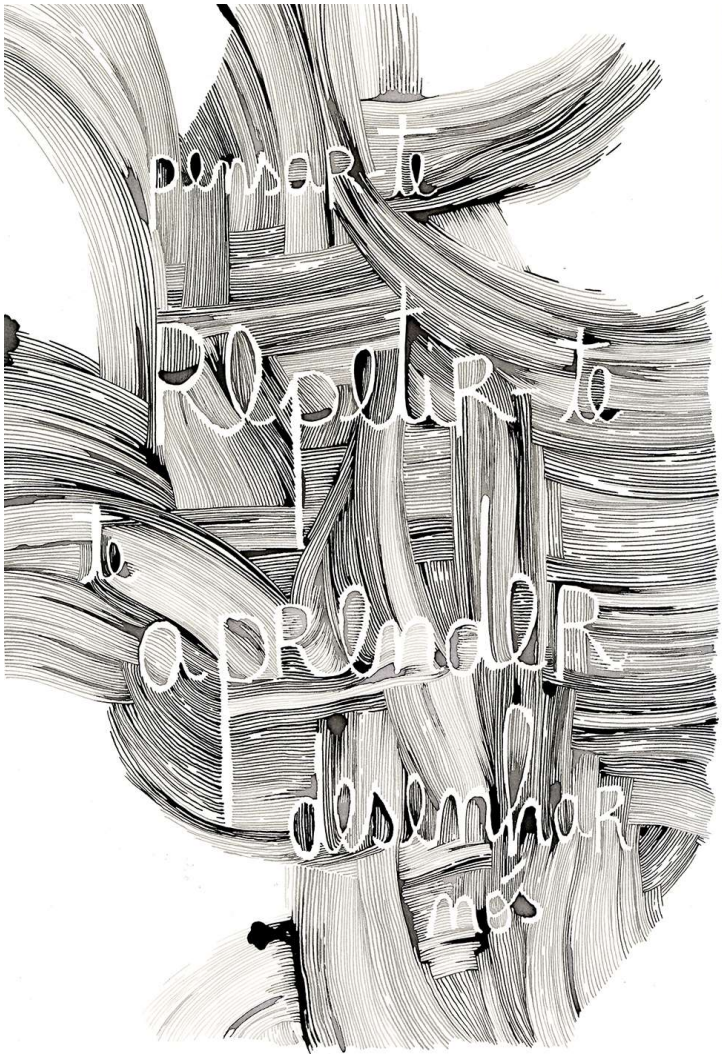 pensar-te
Repetir-te
te
aprender
desenhar
nós